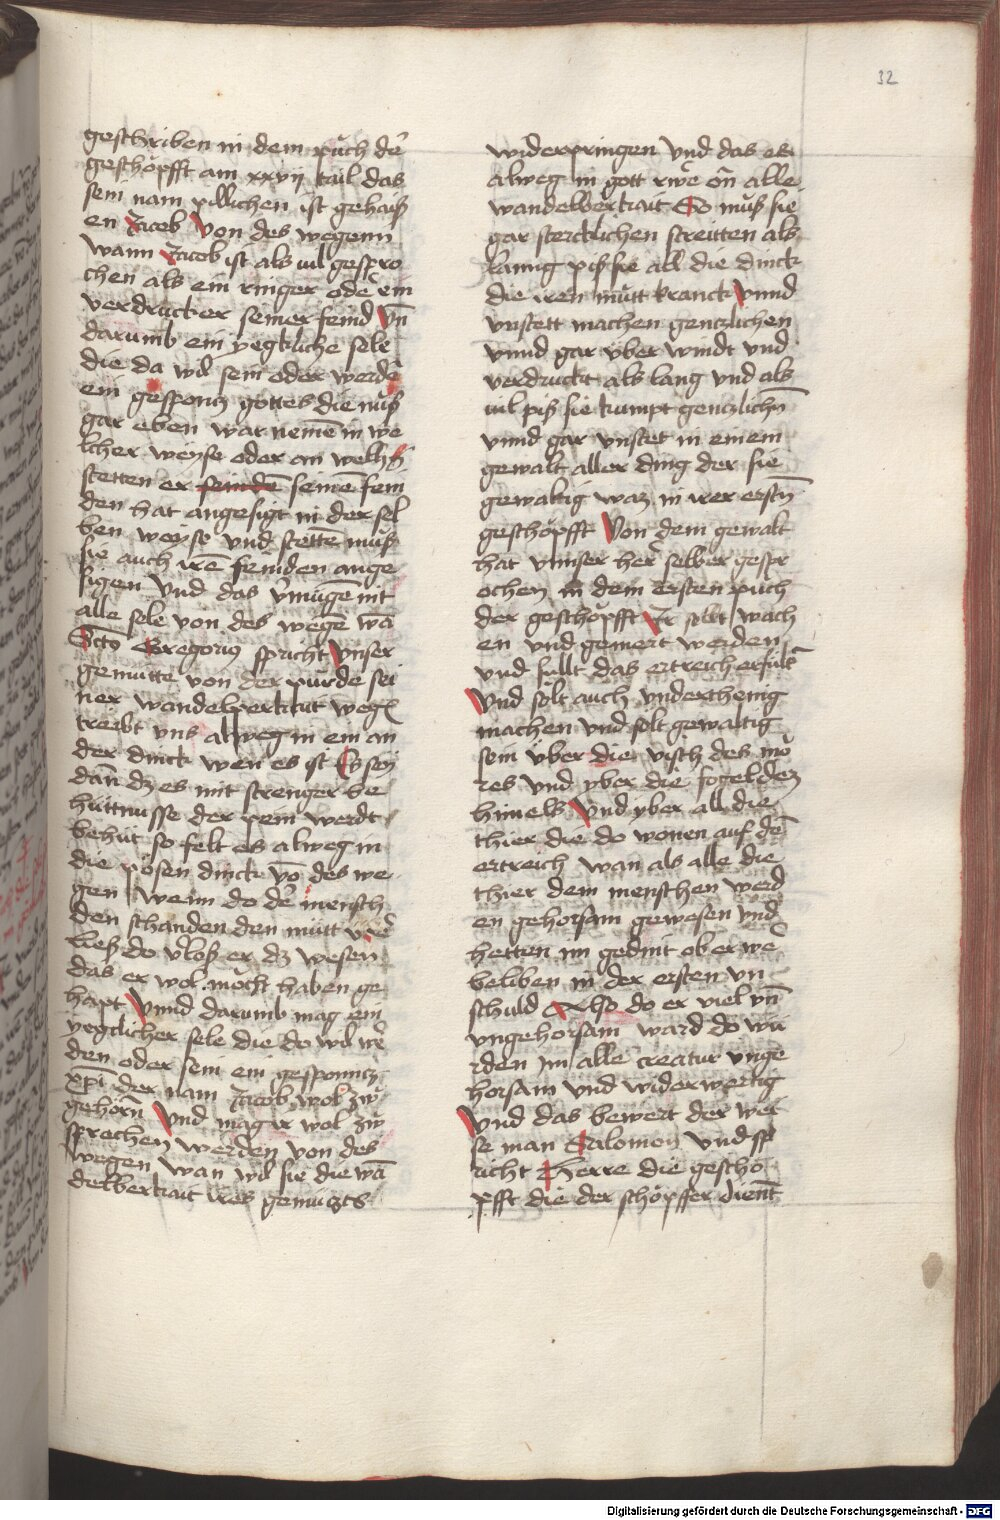 32
geschriben in dem puch der̄
geschöpfft am xxvij tail das
sein nam pillichen ist gehaiß
en Jacob Von des wegenn
wann Jacob ist als uil gespro
chen als ein ringer oder̄ ein
verdrucker seiner feind Vn̄
darumb ein yegkliche sele
die da wil sein oder werdē
ein gesponcz gottes die muß
gar eben war nemē in we
lcher weyse oder an welhē
stetten er feindē seine fein
den hat angesigt in der sel
ben weyse vnd stette muß
sie auch irē feinden ange
sigen Vnd das v̄mugē nit
alle sele von des wegē wā
Sctꝰ Gregoriꝰ spricht Vnser
gemutte von der purde sei
ner wandelpertikait wegē
treibt vns alweg in ein an
der dinck wen es ist Es sey
dañ dz es mit strenger be
huttnusse der pein werdt
behut so felt es alweg in
die pösen dinck vō des we
gen Wenn do der̄ mensch
den schanden den mutt
ließ do v̄loß er dz wesen
das er wol mocht haben ge
hapt Vnnd darumb mag ein
yegclicher sele die do wil wē
den oder sein ein gesponncz
xp̄i der nam Jacob wol zw
gehorn̄ Vnd mag ir wol zw
sprechen werden von des
wegen wan wil sie die wā
delbertkait ires gemüczts
widerpringen vnd das es
alweg in gott rwē on̄ alle
wandelbertkait So muß sie
gar stercklichen streitten als
lanng piß sie all die dinck
die iren mutt kranck Vnnd
vnstett machen genczlichen
vnnd gar vber windt vnd
verdruckt als lang vnd als
uil piß sie kumpt genczlichn̄
vnnd gar vnstet in einem
gewalt aller ding der sie
gewaltig waz in irer erstn̄
geschöpfft Von dem gewalt
hat vnnser her̄ selber gespr
ochen in dem ersten puch
der geschöpfft Ir sollt wach
en vnd gemert werden
vnd sullt das ertreich erfüln̄
Vnd solt auch vndertheing
machen vnd solt gewaltig
sein vber die visch des mö
res vnd yber die fogel dez
himels Vnd yber all die
thier die do wonen auf dē
ertreich wan als alle die
thier dem menschen werd
en gehorsam gewesen vnd
hetten im gedint ob er we
beliben in der ersten vn
schuld Also do er viel vn̄
vngehorsam ward do wu
rden im alle creatur vnge
horsam vnd widerwertig
Vnd das bewert der wei
se man Salomon vnd sp
richt Herre die geschö
pfft die der schöpffer dient̄
Digitalisierung gefördert durch die Deutsche Forschungsgemeinschaft - DFG